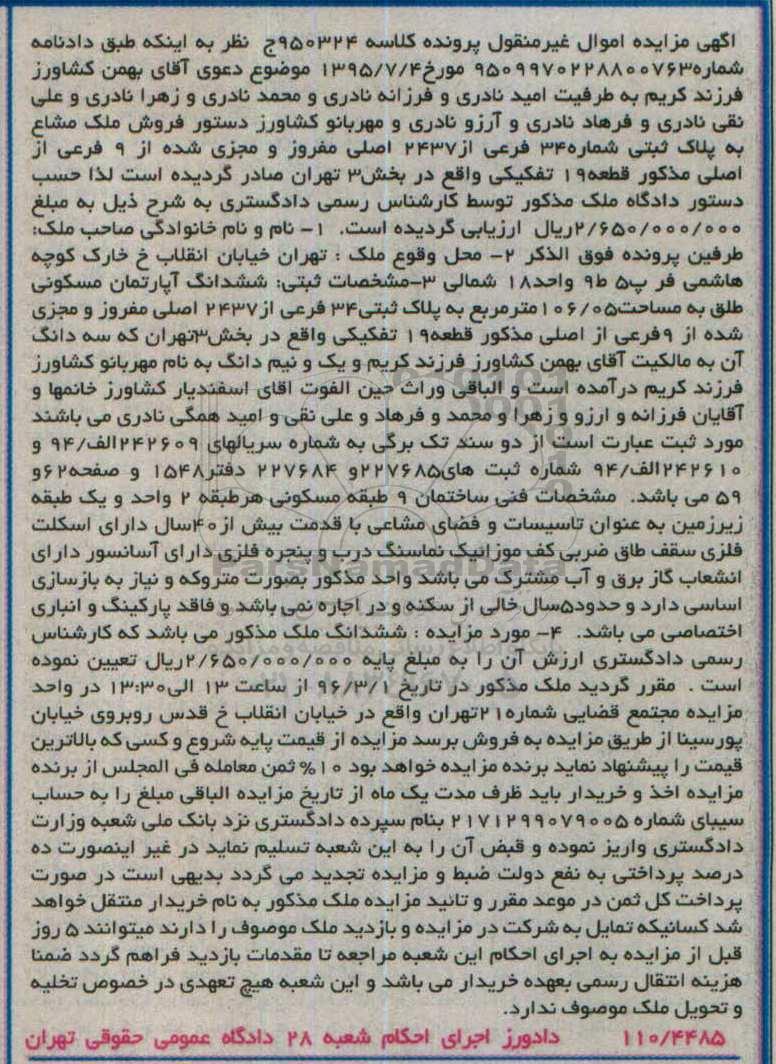 اگهی مزایده اموال غیرمنقول پرونده کلاسه ۹۵۰۳۲۴ج نظر به اینکه طبق دادنامه
شماره۹۵۰۹۹۷۰۲۲۸۸۰۰۷۶۳ مورخ۱۳۹۵/۷/۴ موضوع دعوی آقای بهمن کشاورز
فرزند کریم به طرفیت امید نادری و فرزانه نادری و محمد نادری و زهرا نادری و علی
نقی نادری و فرهاد نادری و آرزو نادری و مهربانو کشاورز دستور فروش ملک مشاع
به پلاک ثبتی شماره۳۴ فرعی از۲۴۳۷ اصلی مفروز و مجزی شده از ۹ فرعی از
اصلی مذکور قطعه۱۹ تفکیکی واقع در بخش۳ تهران صادر گردیده است لذا حسب
دستور دادگاه ملک مذکور توسط کارشناس رسمی دادگستری به شرح ذیل به مبلغ
۲/۶۵۰/۰۰۰/۰۰۰ریال ارزیابی گردیده است. ۱- نام و نام خانوادگی صاحب ملک:
طرفین پرونده فوق الذکر ۲- محل وقوع ملک : تهران خیابان انقلاب خ خارک کوچه
هاشمی فر پ۵ ط۹ واحد۱۸ شمالی ۳-مشخصات ثبتی: ششدانگ آپارتمان مسکونی
طلق به مساحت۱۰۶/۰۵مترمربع به پلاک ثبتی۳۴ فرعی از۲۴۳۷ اصلی مفروز و مجزی
شده از ۹فرعی از اصلی مذکور قطعه۱۹ تفکیکی واقع در بخش۳تهران که سه دانگ
آن به مالکیت آقای بهمن کشاورز فرزند کریم و یک و نیم دانگ به نام مهربانو کشاورز
فرزند کریم درآمده است و الباقی وراث حین الفوت اقای اسفندیار کشاورز خانمها و
آقایان فرزانه و ارزو و زهرا و محمد و فرهاد و علی نقی و امید همگی نادری می باشند
مورد ثبت عبارت است از دو سند تک برگی به شماره سریالهای ۲۴۲۶۰۹الف/۹۴ و
۲۴۲۶۱۰الف/۹۴ شماره ثبت های۲۲۷۶۸۵و ۲۲۷۶۸۴ دفتر۱۵۴۸ و صفحه۶۲و
۵۹ می باشد. مشخصات فنی ساختمان ۹ طبقه مسکونی هرطبقه ۲ واحد و یک طبقه
زیرزمین به عنوان تاسیسات و فضای مشاعی با قدمت بیش از۴۰سال دارای اسکلت
فلزی سقف طاق ضربی کف موزائیک نماسنگ درب و پنجره فلزی دارای آسانسور دارای
انشعاب گاز برق و آب مشترک می باشد واحد مذکور بصورت متروکه و نیاز به بازسازی
اساسی دارد و حدود۵سال خالی از سکنه و در اجاره نمی باشد و فاقد پارکینگ و انباری
اختصاصی می باشد. ۴- مورد مزایده : ششدانگ ملک مذکور می باشد که کارشناس
رسمی دادگستری ارزش آن را به مبلغ پایه ۲/۶۵۰/۰۰۰/۰۰۰ریال تعیین نموده
است . مقرر گردید ملک مذکور در تاریخ ۹۶/۳/۱ از ساعت ۱۳ الی۱۳:۳۰ در واحد
مزایده مجتمع قضایی شماره۲۱تهران واقع در خیابان انقلاب خ قدس روبروی خیابان
پورسینا از طریق مزایده به فروش برسد مزایده از قیمت پایه شروع و کسی که بالاترین
قیمت را پیشنهاد نماید برنده مزایده خواهد بود ۱۰% ثمن معامله فی المجلس از برنده
مزایده اخذ و خریدار باید ظرف مدت یک ماه از تاریخ مزایده الباقی مبلغ را به حساب
سیبای شماره ۲۱۷۱۲۹۹۰۷۹۰۰۵ بنام سپرده دادگستری نزد بانک ملی شعبه وزارت
دادگستری واریز نموده و قبض آن را به این شعبه تسلیم نماید در غیر اینصورت ده
درصد پرداختی به نفع دولت ضبط و مزایده تجدید می گردد بدیهی است در صورت
پرداخت کل ثمن در موعد مقرر و تائید مزایده ملک مذکور به نام خریدار منتقل خواهد
شد کسانیکه تمایل به شرکت در مزایده و بازدید ملک موصوف را دارند میتوانند ۵ روز
قبل از مزایده به اجرای احکام این شعبه مراجعه تا مقدمات بازدید فراهم گردد ضمنا
هزینه انتقال رسمی بعهده خریدار می باشد و این شعبه هیچ تعهدی در خصوص تخلیه
و تحویل ملک موصوف ندارد.
۱۱۰/۴۴۸۵ دادورز اجرای احکام شعبه ۲۸ دادگاه عمومی حقوقی تهران
ParsNamadData